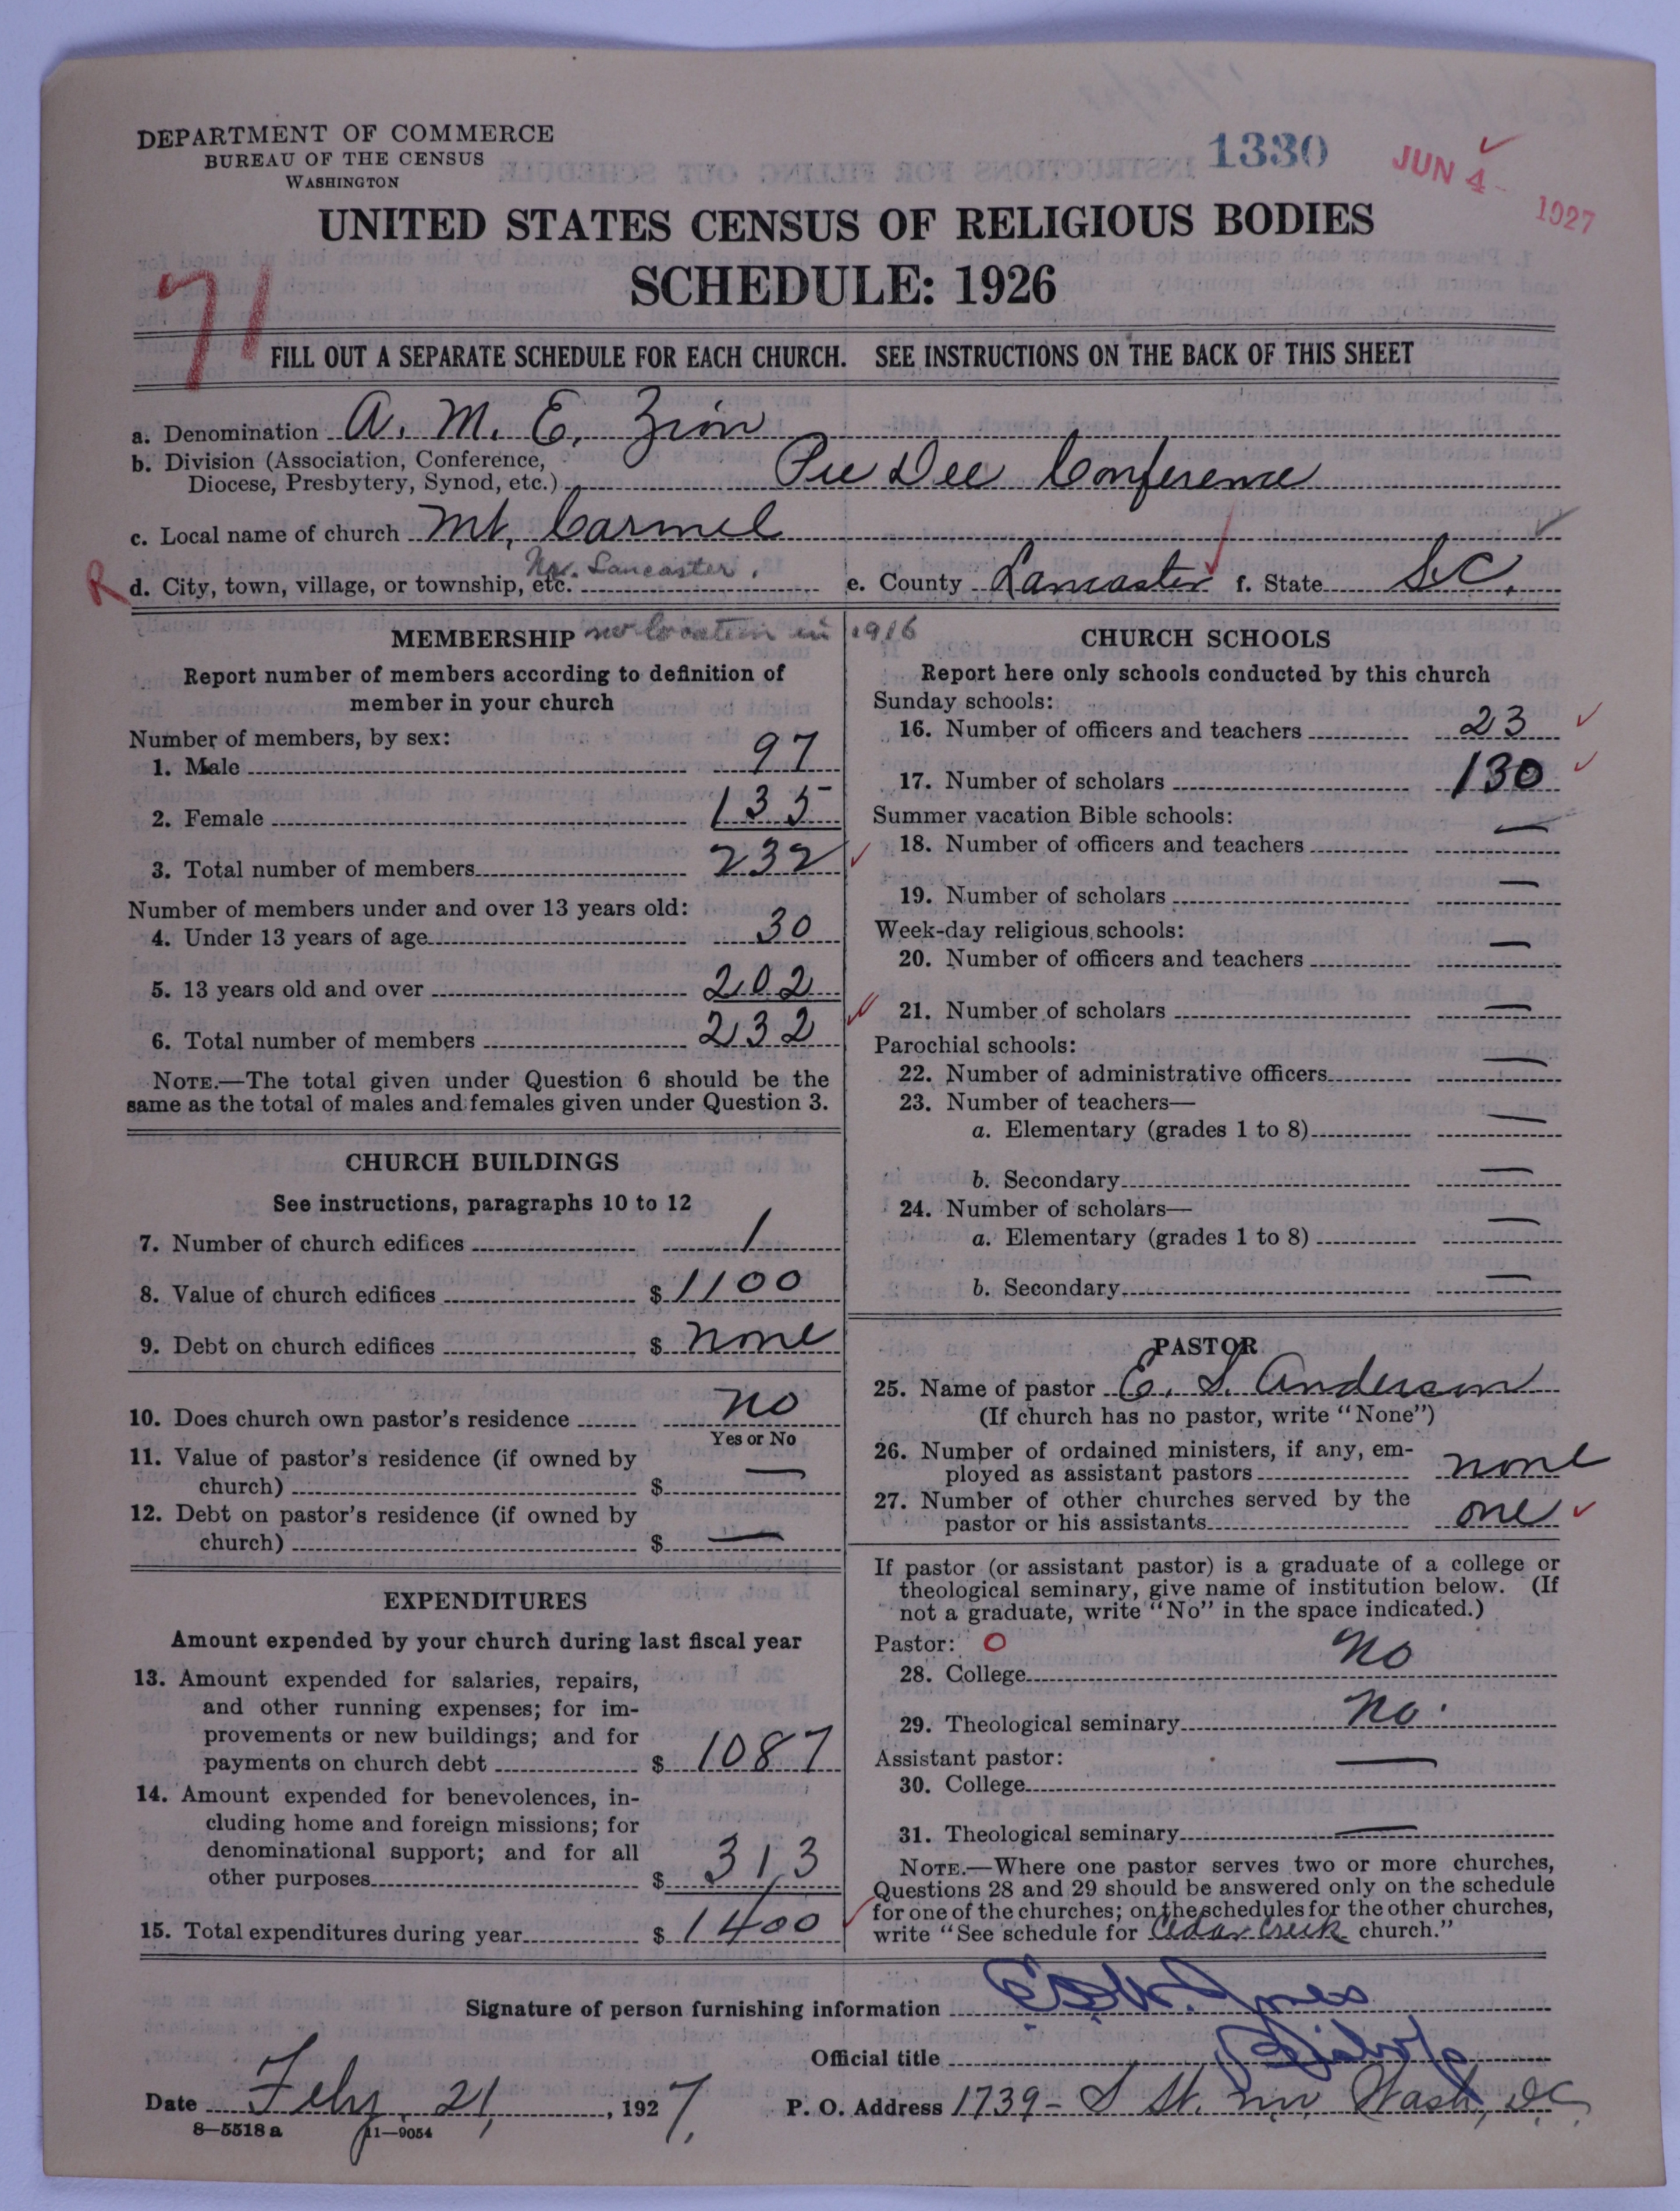 DEPARTMENT OF COMMERCE
BUREAU OF THE CENSUS
WASHINGTON
1330
JUN 4 - 1927
UNITED STATES CENSUS OF RELIGIOUS BODIES
SCHEDULE: 1926
71
FILL OUT A SEPARATE SCHEDULE FOR EACH CHURCH. SEE INSTRUCTIONS ON THE BACK OF THIS SHEET
a. Denomination A. M. E. Zion
b. Division (Association, Conference,
Diocese, Presbytery, Synod, etc.) Pee Dee Conference
c. Local name of church Mt. Carmel
R d. City, town, village, or township, etc. Nr. Lancaster. e. County Lancaster f. State S.C.
MEMBERSHIP no location in 1916
Report number of members according to definition of
member in your church
Number of members, by sex:
1. Male 97
2. Female 135
3. Total number of members 232
Number of members under and over 13 years old:
4. Under 13 years of age 30
5. 13 years old and over 202
6. Total number of members 232
NOTE.—The total given under Question 6 should be the
same as the total of males and females given under Question 3.
CHURCH BUILDINGS
See instructions, paragraphs 10 to 12
7. Number of church edifices 1
8. Value of church edifices $ 1100
9. Debt on church edifices $ none
10. Does church own pastor's residence no
Yes or No
11. Value of pastor's residence (if owned by
church) $ —
12. Debt on pastor's residence (if owned by
church) $ —
EXPENDITURES
Amount expended by your church during last fiscal year
13. Amount expended for salaries, repairs,
and other running expenses; for im-
provements or new buildings; and for
payments on church debt $ 1087
14. Amount expended for benevolences, in-
cluding home and foreign missions; for
denominational support; and for all
other purposes $ 313
15. Total expenditures during year $ 1400
CHURCH SCHOOLS
Report here only schools conducted by this church
Sunday schools:
16. Number of officers and teachers 23
17. Number of scholars 130
Summer vacation Bible schools:
18. Number of officers and teachers —
19. Number of scholars —
Week-day religious schools:
20. Number of officers and teachers —
21. Number of scholars —
Parochial schools:
22. Number of administrative officers —
23. Number of teachers—
a. Elementary (grades 1 to 8) —
b. Secondary —
24. Number of scholars—
a. Elementary (grades 1 to 8) —
b. Secondary —
PASTOR
25. Name of pastor E. S. Anderson
(If church has no pastor, write "None")
26. Number of ordained ministers, if any, em-
ployed as assistant pastors none
27. Number of other churches served by the
pastor or his assistants one
If pastor (or assistant pastor) is a graduate of a college or
theological seminary, give name of institution below. (If
not a graduate, write "No" in the space indicated.)
Pastor: O
28. College no
29. Theological seminary no.
Assistant pastor:
30. College —
31. Theological seminary —
NOTE.—Where one pastor serves two or more churches,
Questions 28 and 29 should be answered only on the schedule
for one of the churches; on the schedules for the other churches,
write "See schedule for Cedar Creek church."
Signature of person furnishing information Jones
Official title Bishop
Date Feby. 21, 1927, P. O. Address 1739 - S St. nw. Wash, D.C.
8—5518 a 11—9054